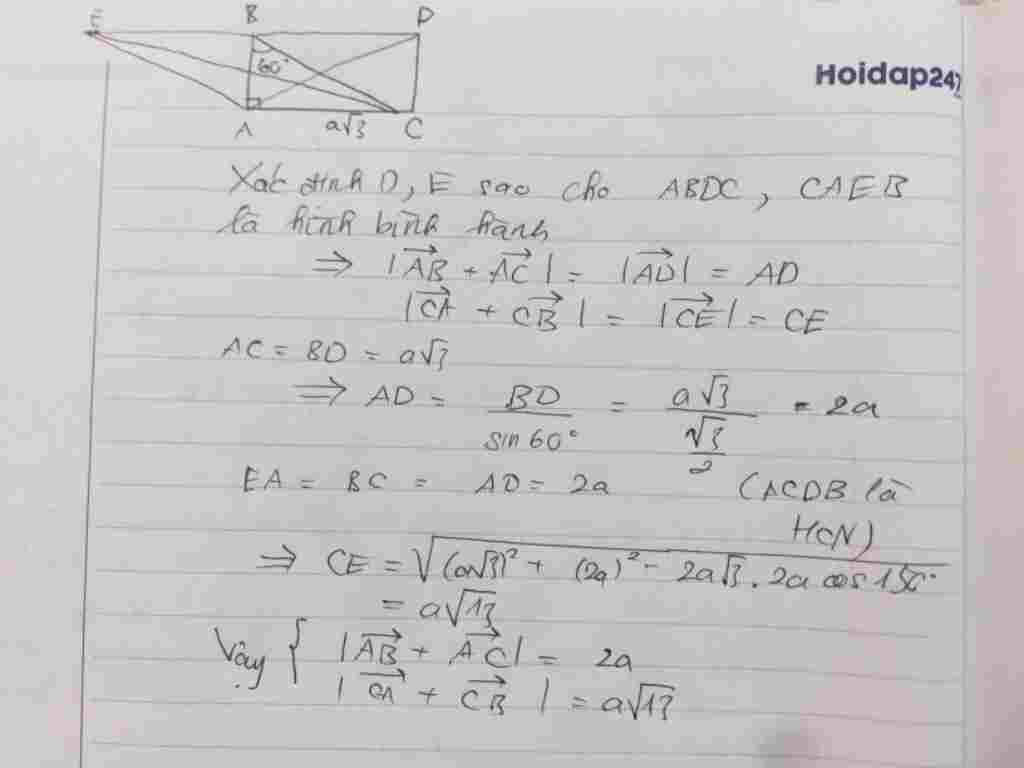 E B D
60°
A a√3 C
Hoidap247
Xác định D, E sao cho ABDC, CAEB
là hình bình hành
⇒ |AB→ + AC→| = |AD→| = AD
|CA→ + CB→| = |CE→| = CE
AC = BD = a√3
⇒ AD = BD / sin 60° = a√3 / (√3/2) = 2a
EA = BC = AD = 2a (ACDB là
HCN)
⇒ CE = √((a√3)² + (2a)² - 2a√3 . 2a cos 150°)
= a√13
Vậy { |AB→ + AC→| = 2a
|CA→ + CB→| = a√13